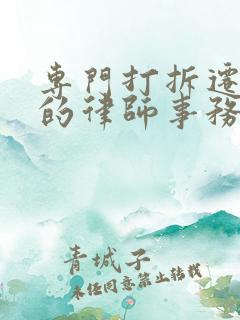 專門打拆遷
的律師事務
青城子
未经同意禁止转载